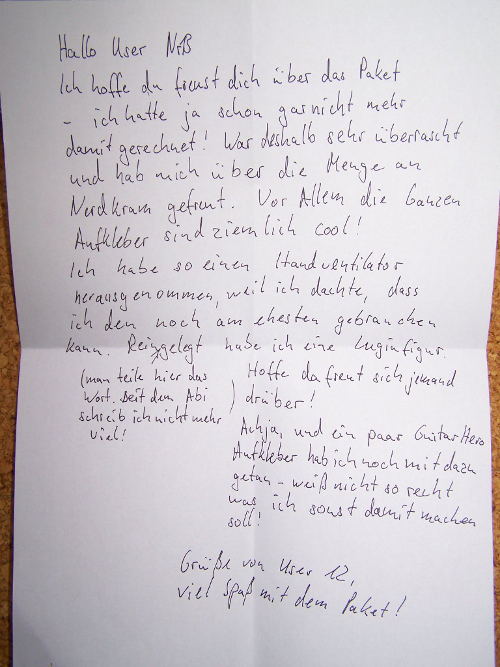 Hallo User NrB
Ich hoffe du freust dich über das Paket
- ich hatte ja schon garnicht mehr
damit gerechnet! War deshalb sehr überrascht
und hab mich über die Menge an
Nerdkram gefreut. Vor Allem die Ganzen
Aufkleber sind ziemlich cool!
Ich habe so einen Handventilator
herausgenommen, weil ich dachte, dass
ich den noch am ehesten gebrauchen
kann. Reingelegt habe ich eine Luigifigur.
(man teile hier das
Wort. Seit dem Abi
schreib ich nicht mehr
viel!)
Hoffe da freut sich jemand
drüber!
Achja, und ein paar Guitar Hero
Aufkleber hab ich noch mit dazu
getan - weiß nicht so recht
was ich sonst damit machen
soll!
Grüße von User 12,
viel Spaß mit dem Paket!